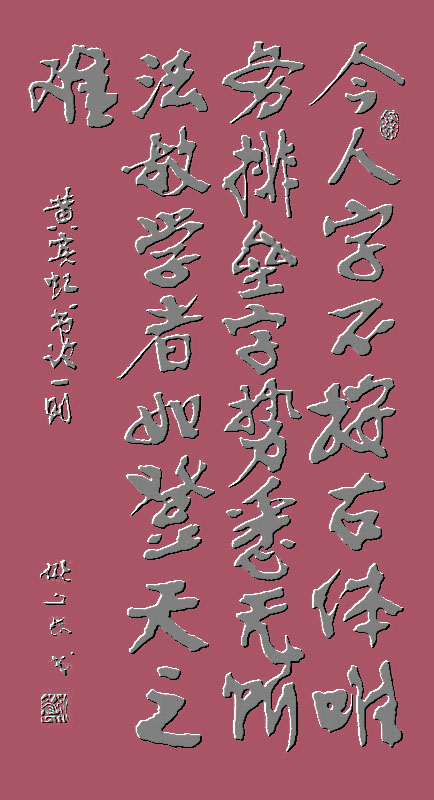 今人字不按古体唯
务排叠字势悉无所
法教学者如登天之
难
黄宾虹书论一则